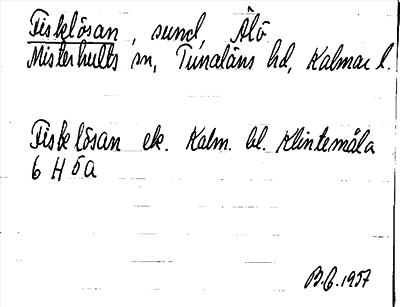 Fisklösan, sund, Älö
Misterhults sn, Tunaläns hd, Kalmar l.
Fisklösan ek. Kalm. bl. Klintemåla
6 H ö a
B.G. 1957